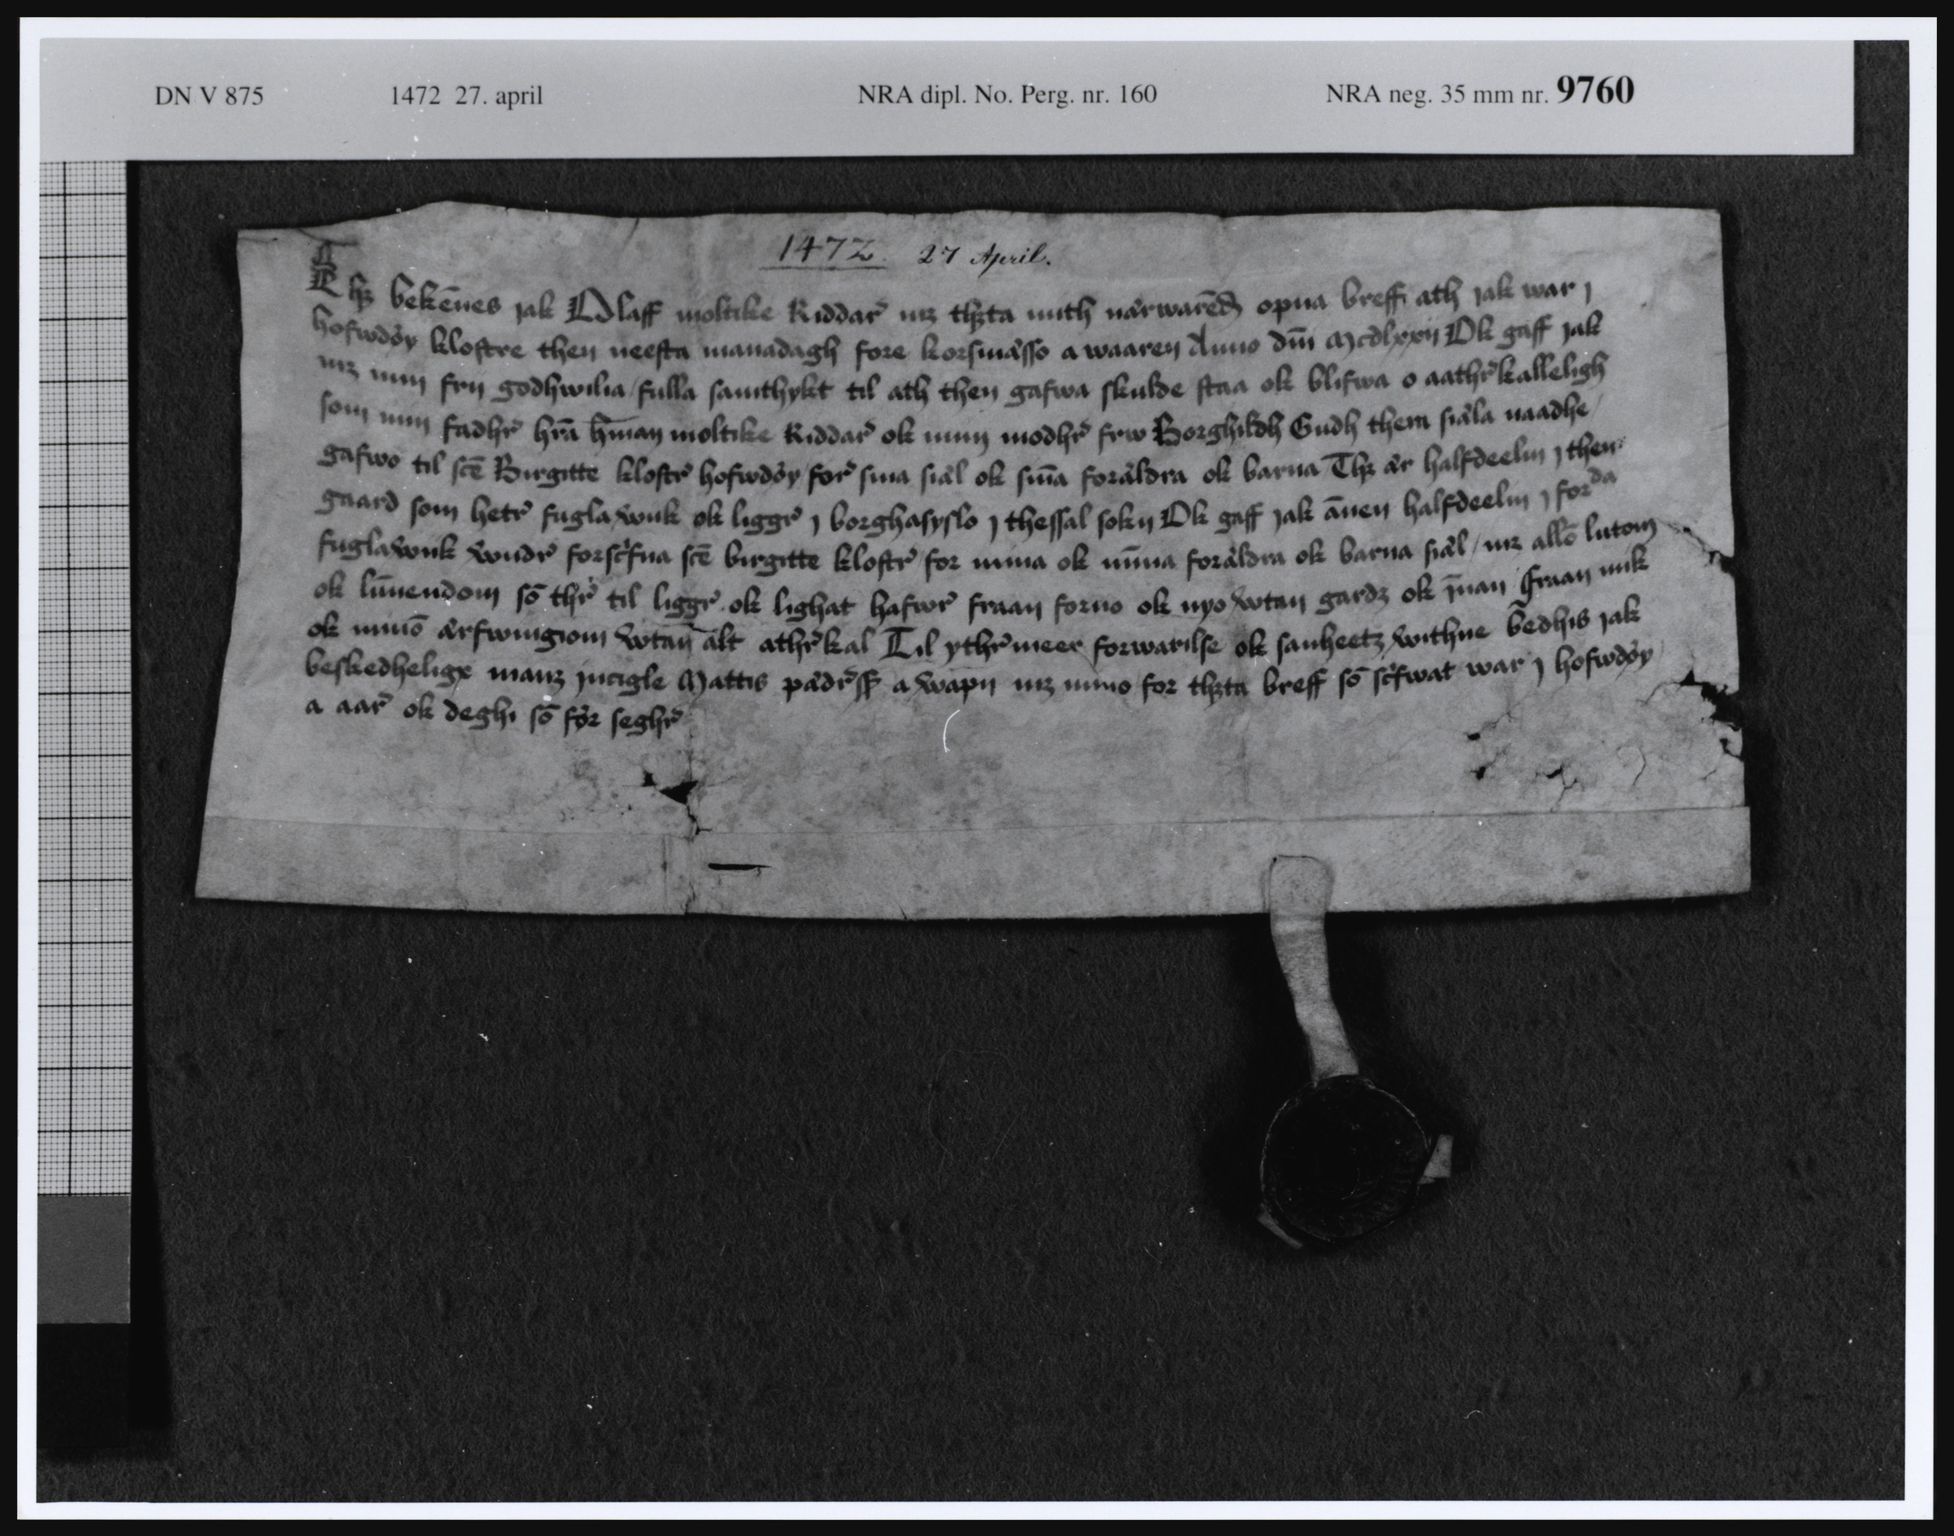 DN V 875 1472 27. april NRA dipl. No. Perg. nr. 160 NRA neg. 35 mm nr. 9760
1472. 27 April.
Thꝫ bekēnes jak Olaff moltike Riddar̛ mꝫ thꝫta mith nårwarēd opna breff ath jak war j
hofwdøy klostre then neesta manadagh fore korsmåsso a waaren Anno dn̄i Mcdlxxij Ok gaff jak
mꝫ min fry godhwilia / fulla samthykt til ath then gafwa skulde staa ok blifwa o aathr̛kalleligh
som min fadhr̛ hrā hr̄man moltike Riddar̛ ok min modhr̛ frw Borghildh Gudh thera siåla naadhe
gafwo til scē Birgitte klostr̛ hofwdøy / for̛ sina siål ok sin̄a foråldra ok barna Thꝫ år halfdeelin j then
gaard som hetr̛ fuglawik ok liggr̛ j borghasyslo j thessal sokn Ok gaff jak ānen halfdeelin j forda
fuglawik wndr̛ forscfna scē birgitte klostr̛ for mina ok mīna foråldra ok barna siål / mꝫ allō lutom
ok lūnendom sō thr̛ til liggr̛ ok lighat hafwr̛ fraan forno ok nyo wtan gardꝫ ok īnan ffraan mik
ok minō årfwingiom wtan alt athr̛kal Til ythr̛meer forwarilse ok sanheetꝫ withne bedhis jak
beskedheligx manꝫ incigle Mattis pådr̛ss a wapn mꝫ mino for thꝫta breff sō scfwat war j hofwdøy
a aar̛ ok deghi sō før seghr̛